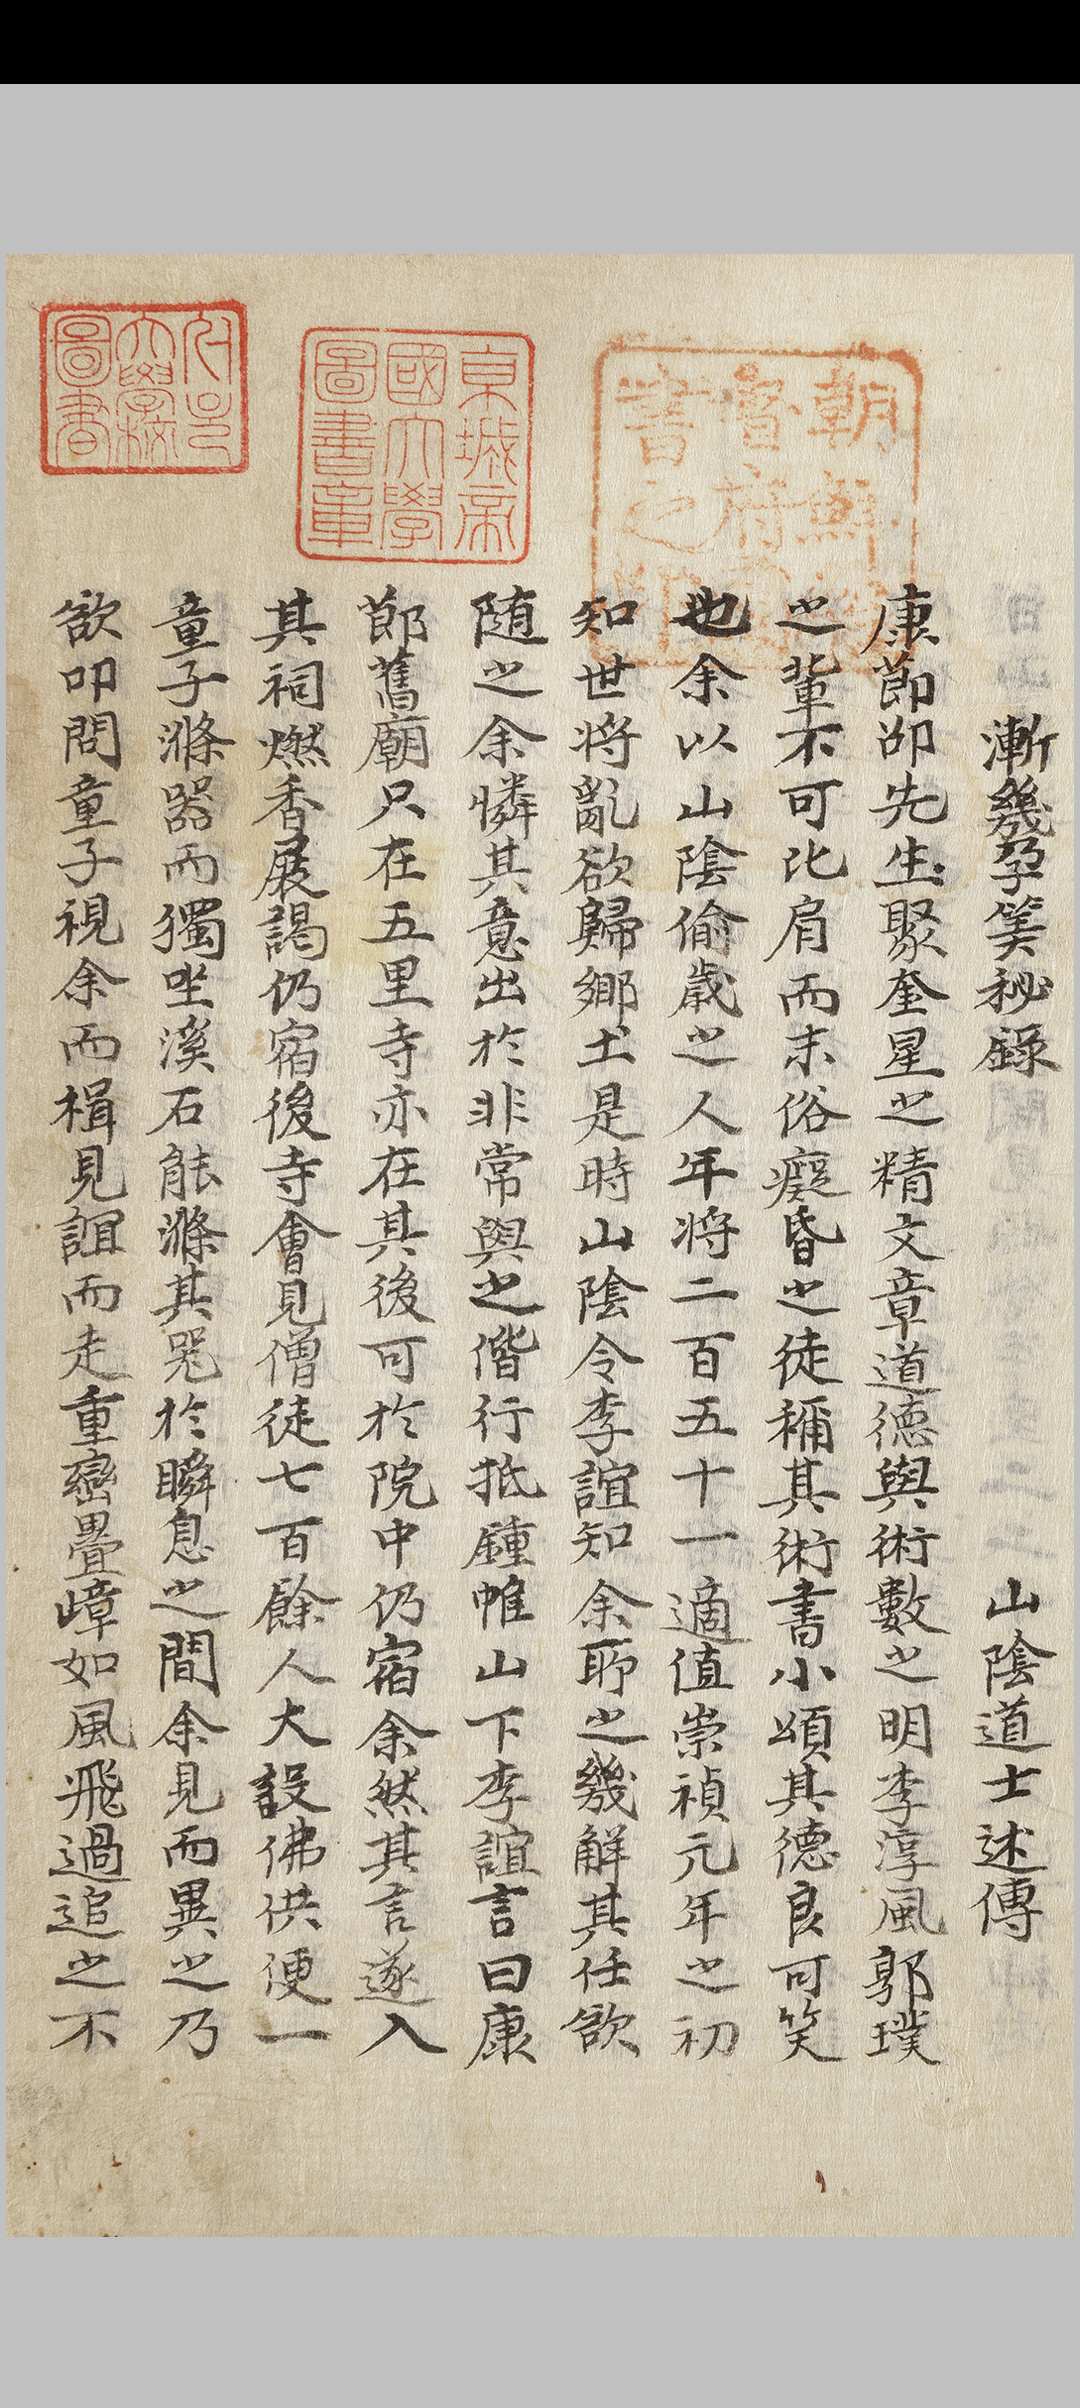 漸幾孕筭秘錄 山陰道士述傳
康節邵先生聚奎星之精文章道德與術數之明李淳風郭璞
之輩不可比肩而末俗癡昏之徒稱其術書小頌其德良可笑
也余以山陰偷歲之人年將二百五十一適值崇禎元年之初
知世将亂欲歸鄉土是時山陰令李誼知余耶之幾解其任欲
随之余憐其意出於非常與之偕行抵鍾帷山下李誼言曰康
節舊廟只在五里寺亦在其後可於院中仍宿余然其言遂入
其祠燃香展謁仍宿後寺會見僧徒七百餘人大設佛供便一
童子滌器而獨坐溪石能滌其器於瞬息之間余見而異之乃
欲叩問童子視余而揖見誼而走重巒疊嶂如風飛過追之不
朝鮮 督府 書之印
京城帝國大學圖書章
大學校圖書